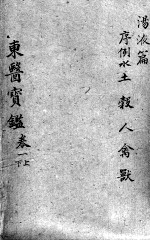 湯液篇
序例水土 穀 人 禽 獸
東醫寶鑑 卷一 上下